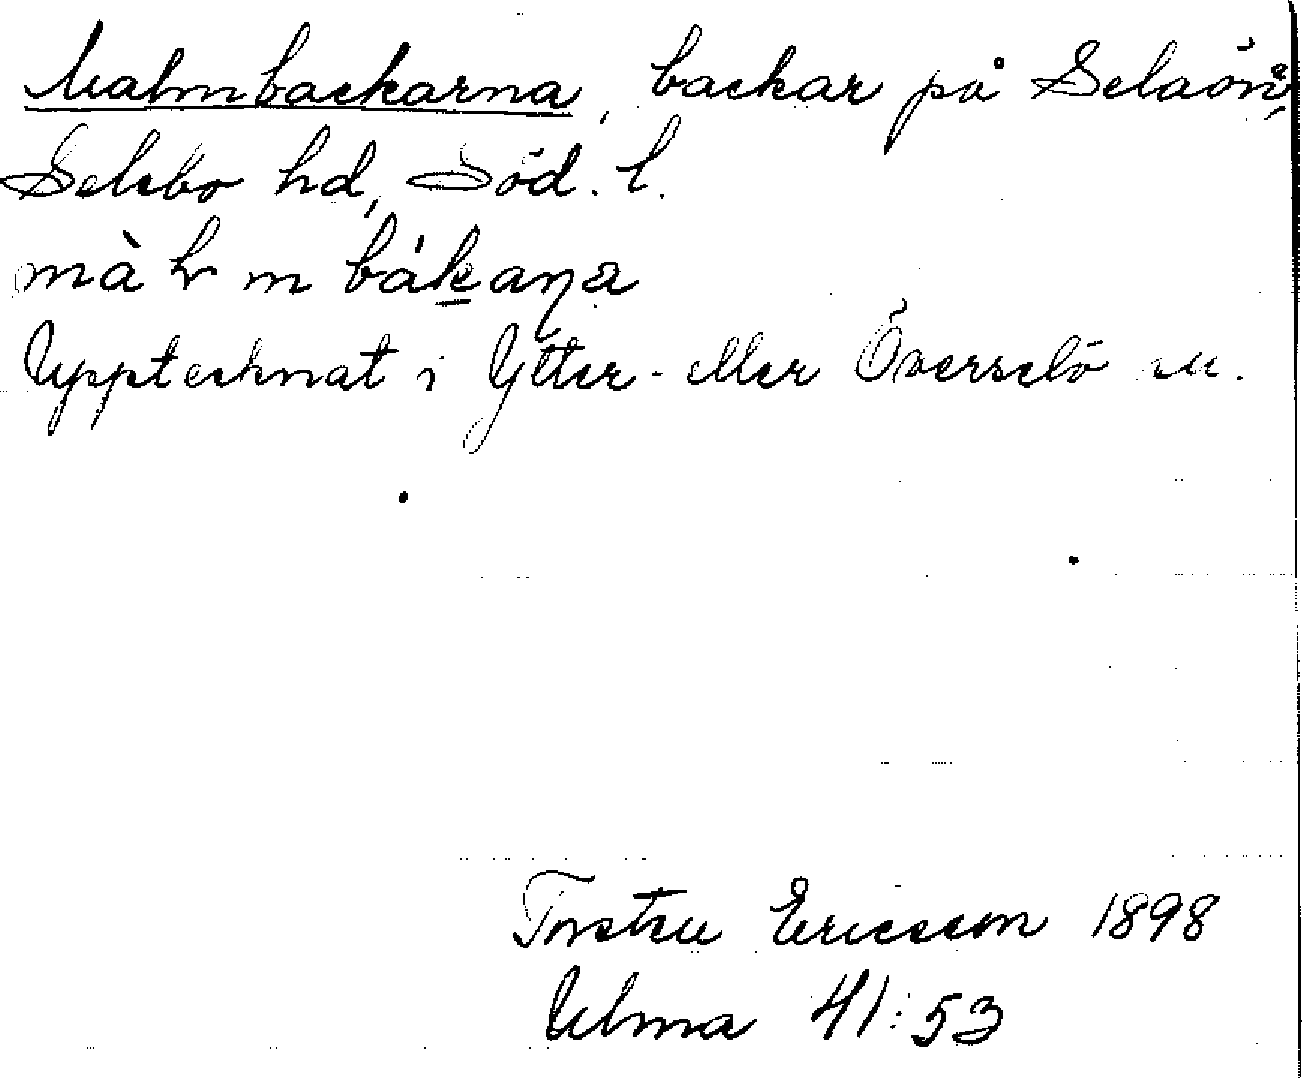 Malmbackarna, backar på Selaön,
Selebo hd, Söd. l.
Upptecknat i Ytter- eller Överselö sn.
Torsten Ericsson 1898
Ulma 41:53